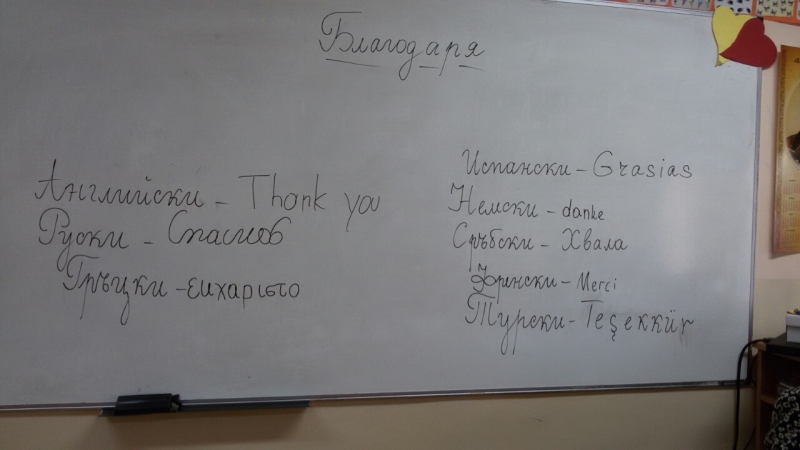 Благодаря
Английски - Thank you
Руски - Спасиоб
Гръцки - ειχαριστο
Испански - Grasias
Немски - danke
Сръбски - Хвала
Френски - Merci
Турски - Teşekkür